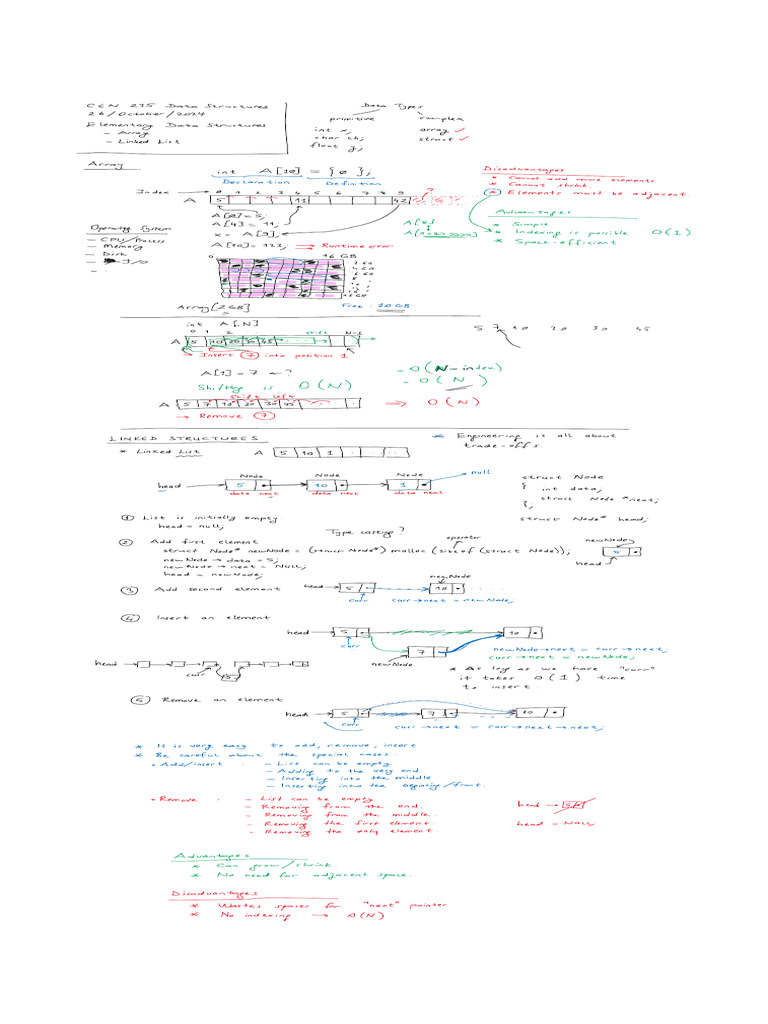 CEN 235 Data Structures
26/October/2024
Elementary Data Structures
- Array
- Linked List
Data Types
primitive complex
int x; array ✓
char ch; struct ✓
float y;
Array
int A[10] = {0};
Declaration Definition
Index → 0 1 2 3 4 5 6 7 8 9 ?
A 5 11 42
A[0] = 5;
A[4] = 11;
x = A[9];
A[10] = 123; → Runtime error
Disadvantages
* Cannot add more elements
* Cannot shrink
* Elements must be adjacent
Advantages
* Simple
* Indexing is possible O(1)
* Space-efficient
A[8]
Operating System
- CPU/Process
- Memory
- Disk
- I/O
- :
0 16 GB
Array[2GB] Free: 20GB
int A[N]
0 1 2 shift N-1
A 5 10 20 30 45 . . .
→ Insert 7 into position 1
5 7 10 20 30 45
A[1] = 7 ← ?
Shifting is O(N)
- O(N-index)
- O(N)
shift left
A 5 7 10 20 30 45 . . . → O(N)
→ Remove 7
LINKED STRUCTURES
* Engineering is all about
trade-offs
* Linked List A 5 10 1 . . . .
Node Node Node null
head 5 10 1
data next data next data next
struct Node
{ int data;
struct Node *next;
};
struct Node* head;
① List is initially empty.
head = null;
Type casting? operator
② Add first element
struct Node* newNode = (struct Node*) malloc (sizeof (struct Node));
newNode → data = 5;
newNode → next = NULL;
head = newNode;
newNode
5
head
③ Add second element
head 5 10 newNode
curr curr→next = newNode;
④ Insert an element
head 5 10
curr 7
newNode
newNode→next = curr→next;
curr→next = newNode;
head
curr
* As long as we have "curr"
it takes O(1) time
to insert
⑤ Remove an element
head 5 7 10
curr curr→next = curr→next→next;
* It is very easy to add, remove, insert
* Be careful about the special cases.
- Add/insert : - List can be empty
- Adding to the very end
- Inserting into the middle
- Inserting into the beginning/front.
- Remove : - List can be empty
- Removing from the end
- Removing from the middle.
- Removing the first element
- Removing the only element.
head → 5
head = NULL
Advantages
* Can grow/shrink.
* No need for adjacent space.
Disadvantages
* Wastes spaces for "next" pointer
* No indexing → O(N)